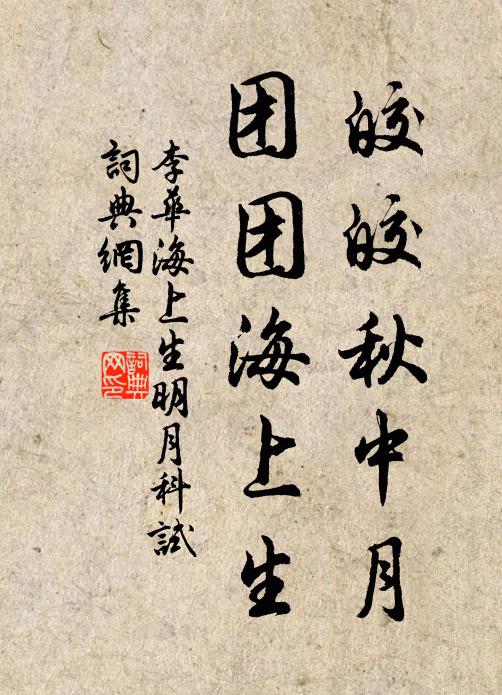 皎皎秋中月
团团海上生
李華海上生明月科試
詞典網集
詞典网印